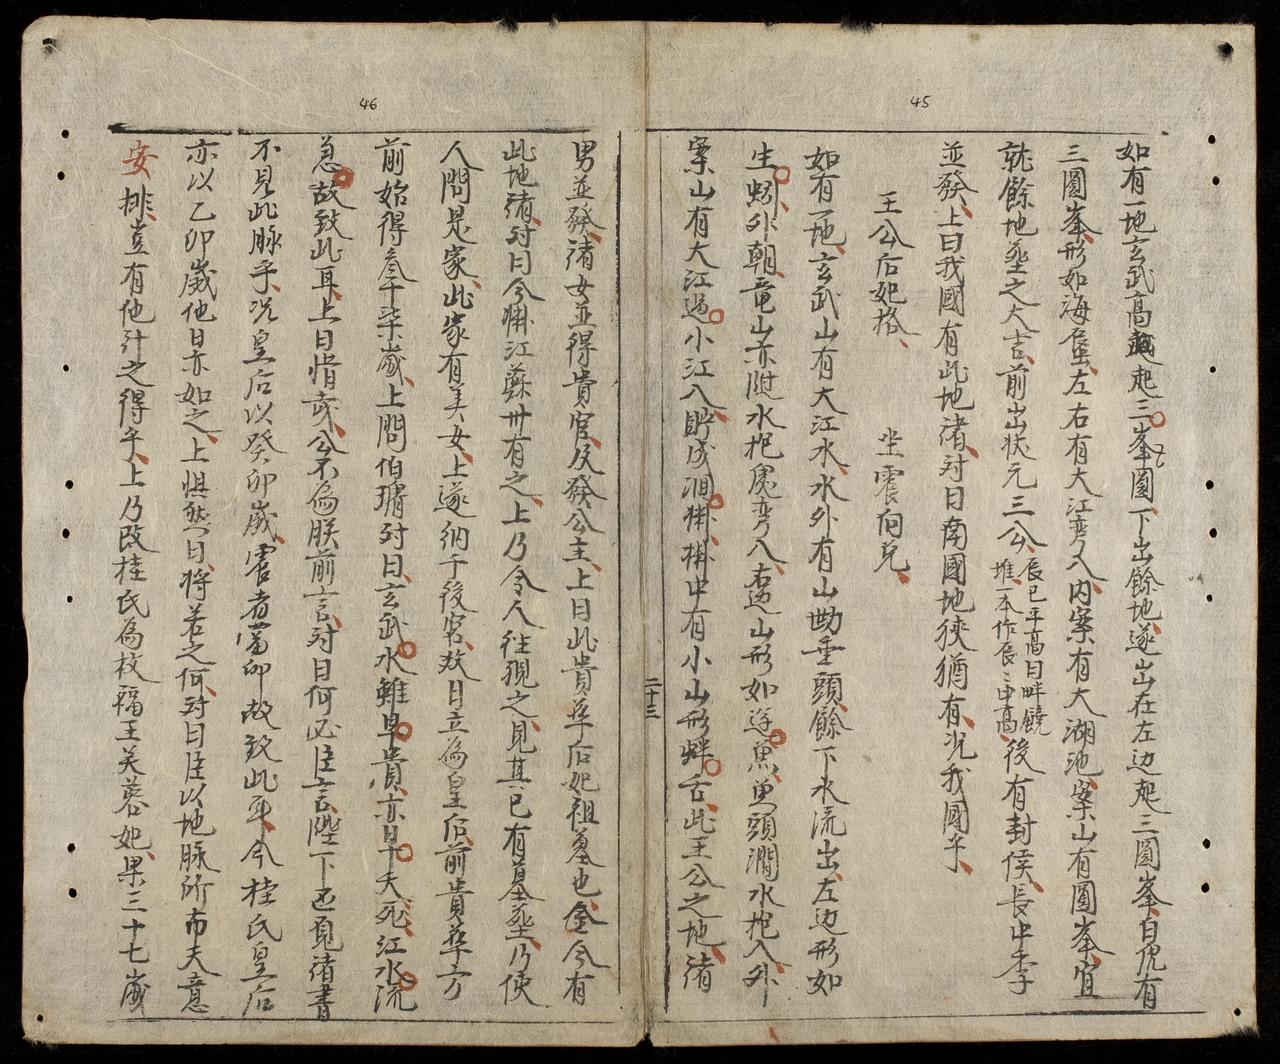 45
如有一地玄武高越起三峯圓下出餘地遂出在左边起三圓峯白虎有
三圓峯形如海屋左右有大江弯入内案有大湖池案山有圓峯宜
就餘地塟之大吉前出狀元三公辰巳平高日畔饒後有封侯長中季
堆一本作辰辰中高
並發上曰我國有此地渚对曰南國地狹猶有况我國乎
王公后妃格 坐震向兑
如有一地玄武山有大江水水外有山拋垂頭餘下水流出左边形如
生蚓外朝竜山亦附水抱尾弯入右边山形如逆魚魚頭澗水抱入外
案山有大江过小江入貯成洄洲中有小山形蚌舌此王公之地渚
二十三
46
男並發渚女並得貴官仄發公主上曰此貴葬后妃祖墓也今有
此地渚对曰今擀江蘇卅有之上乃令人往覌之見其已有墓塟乃使
人問是家此家有美女上遂納于後宫教日立為皇后前貴葬方
前始得叁十柒歲上問伯璛对曰玄武水雖早貴亦早夭死江水流
急故致此耳上曰惜哉公不為朕前言对曰何必臣言陛下函覓渚書
不見此脉乎况皇后以癸卯歲震者當卯故致此耳今桂氏皇后
亦以乙卯歲他日亦如之上惧然曰将若之何对曰臣以地脉所布夫意
安排豈有他计之得乎上乃改桂氏為枝福王芙蓉妃果三十七歲